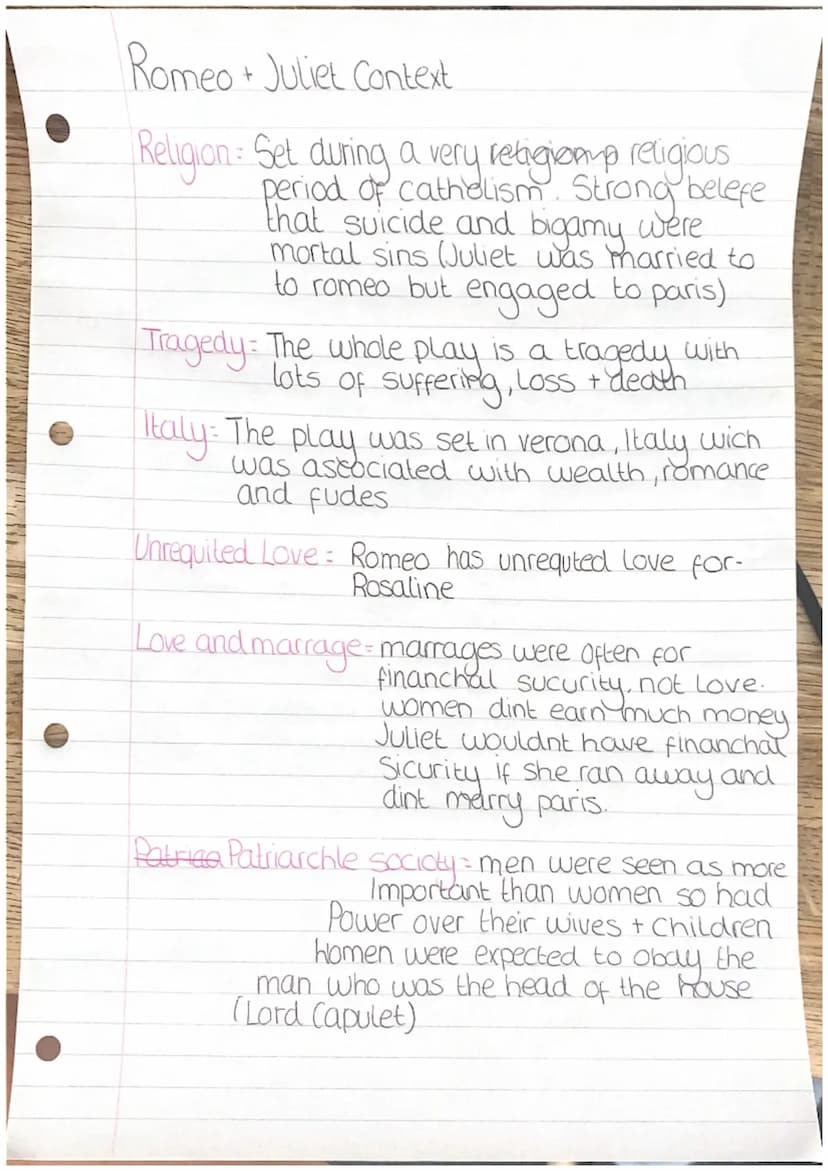 Romeo + Juliet Context
Religion = Set during a very religiomp religious
period of cathelism. Strong belefe
that suicide and bigamy were
mortal sins (Juliet was married to
to romeo but engaged to paris)
Tragedy = The whole play is a tragedy with
lots of suffering, Loss + death
Italy = The play was set in verona, Italy wich
was associated with wealth, romance
and fudes
Unrequited Love = Romeo has unrequted Love for-
Rosaline
Love and marrage = marrages were often for
financhal sucurity, not Love.
women dint earn much money
Juliet wouldnt have financhal
Sicurity if she ran away and
dint marry paris.
Patriaa Patriarchle socioty = men were seen as more
Important than women so had
Power over their wives + children
Women were expected to obay the
man who was the head of the house
(Lord Capulet)